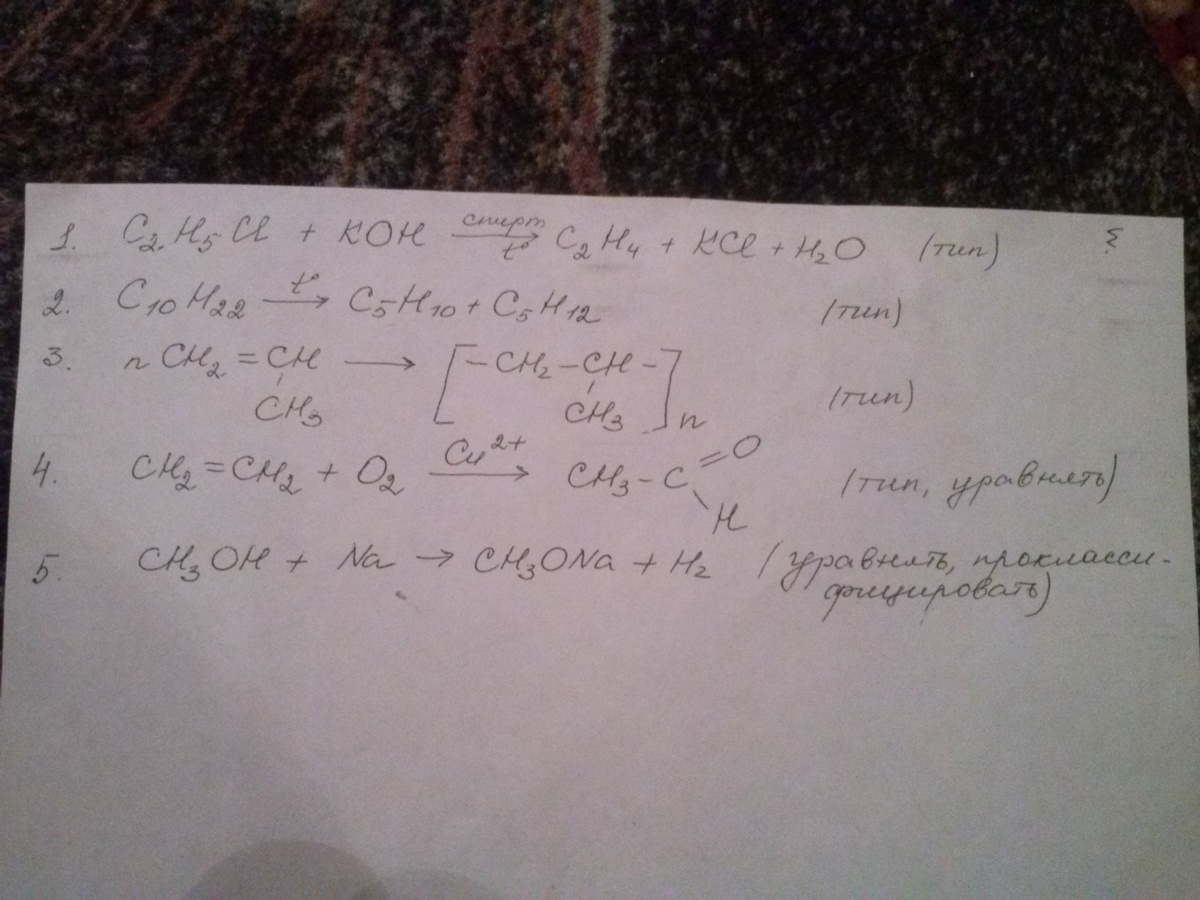 1. C₂H₅Cl + KOH —спирт, t°→ C₂H₄ + KCl + H₂O (тип)
2. C₁₀H₂₂ —t°→ C₅H₁₀ + C₅H₁₂ (тип)
3. n CH₂ = CH → [ – CH₂ – CH – ]n (тип)
CH₃ CH₃
4. CH₂ = CH₂ + O₂ —Cu²⁺→ CH₃ – C =O (тип, уравнять)
H
5. CH₃OH + Na → CH₃ONa + H₂ (уравнять, проклассифи-
фицировать)